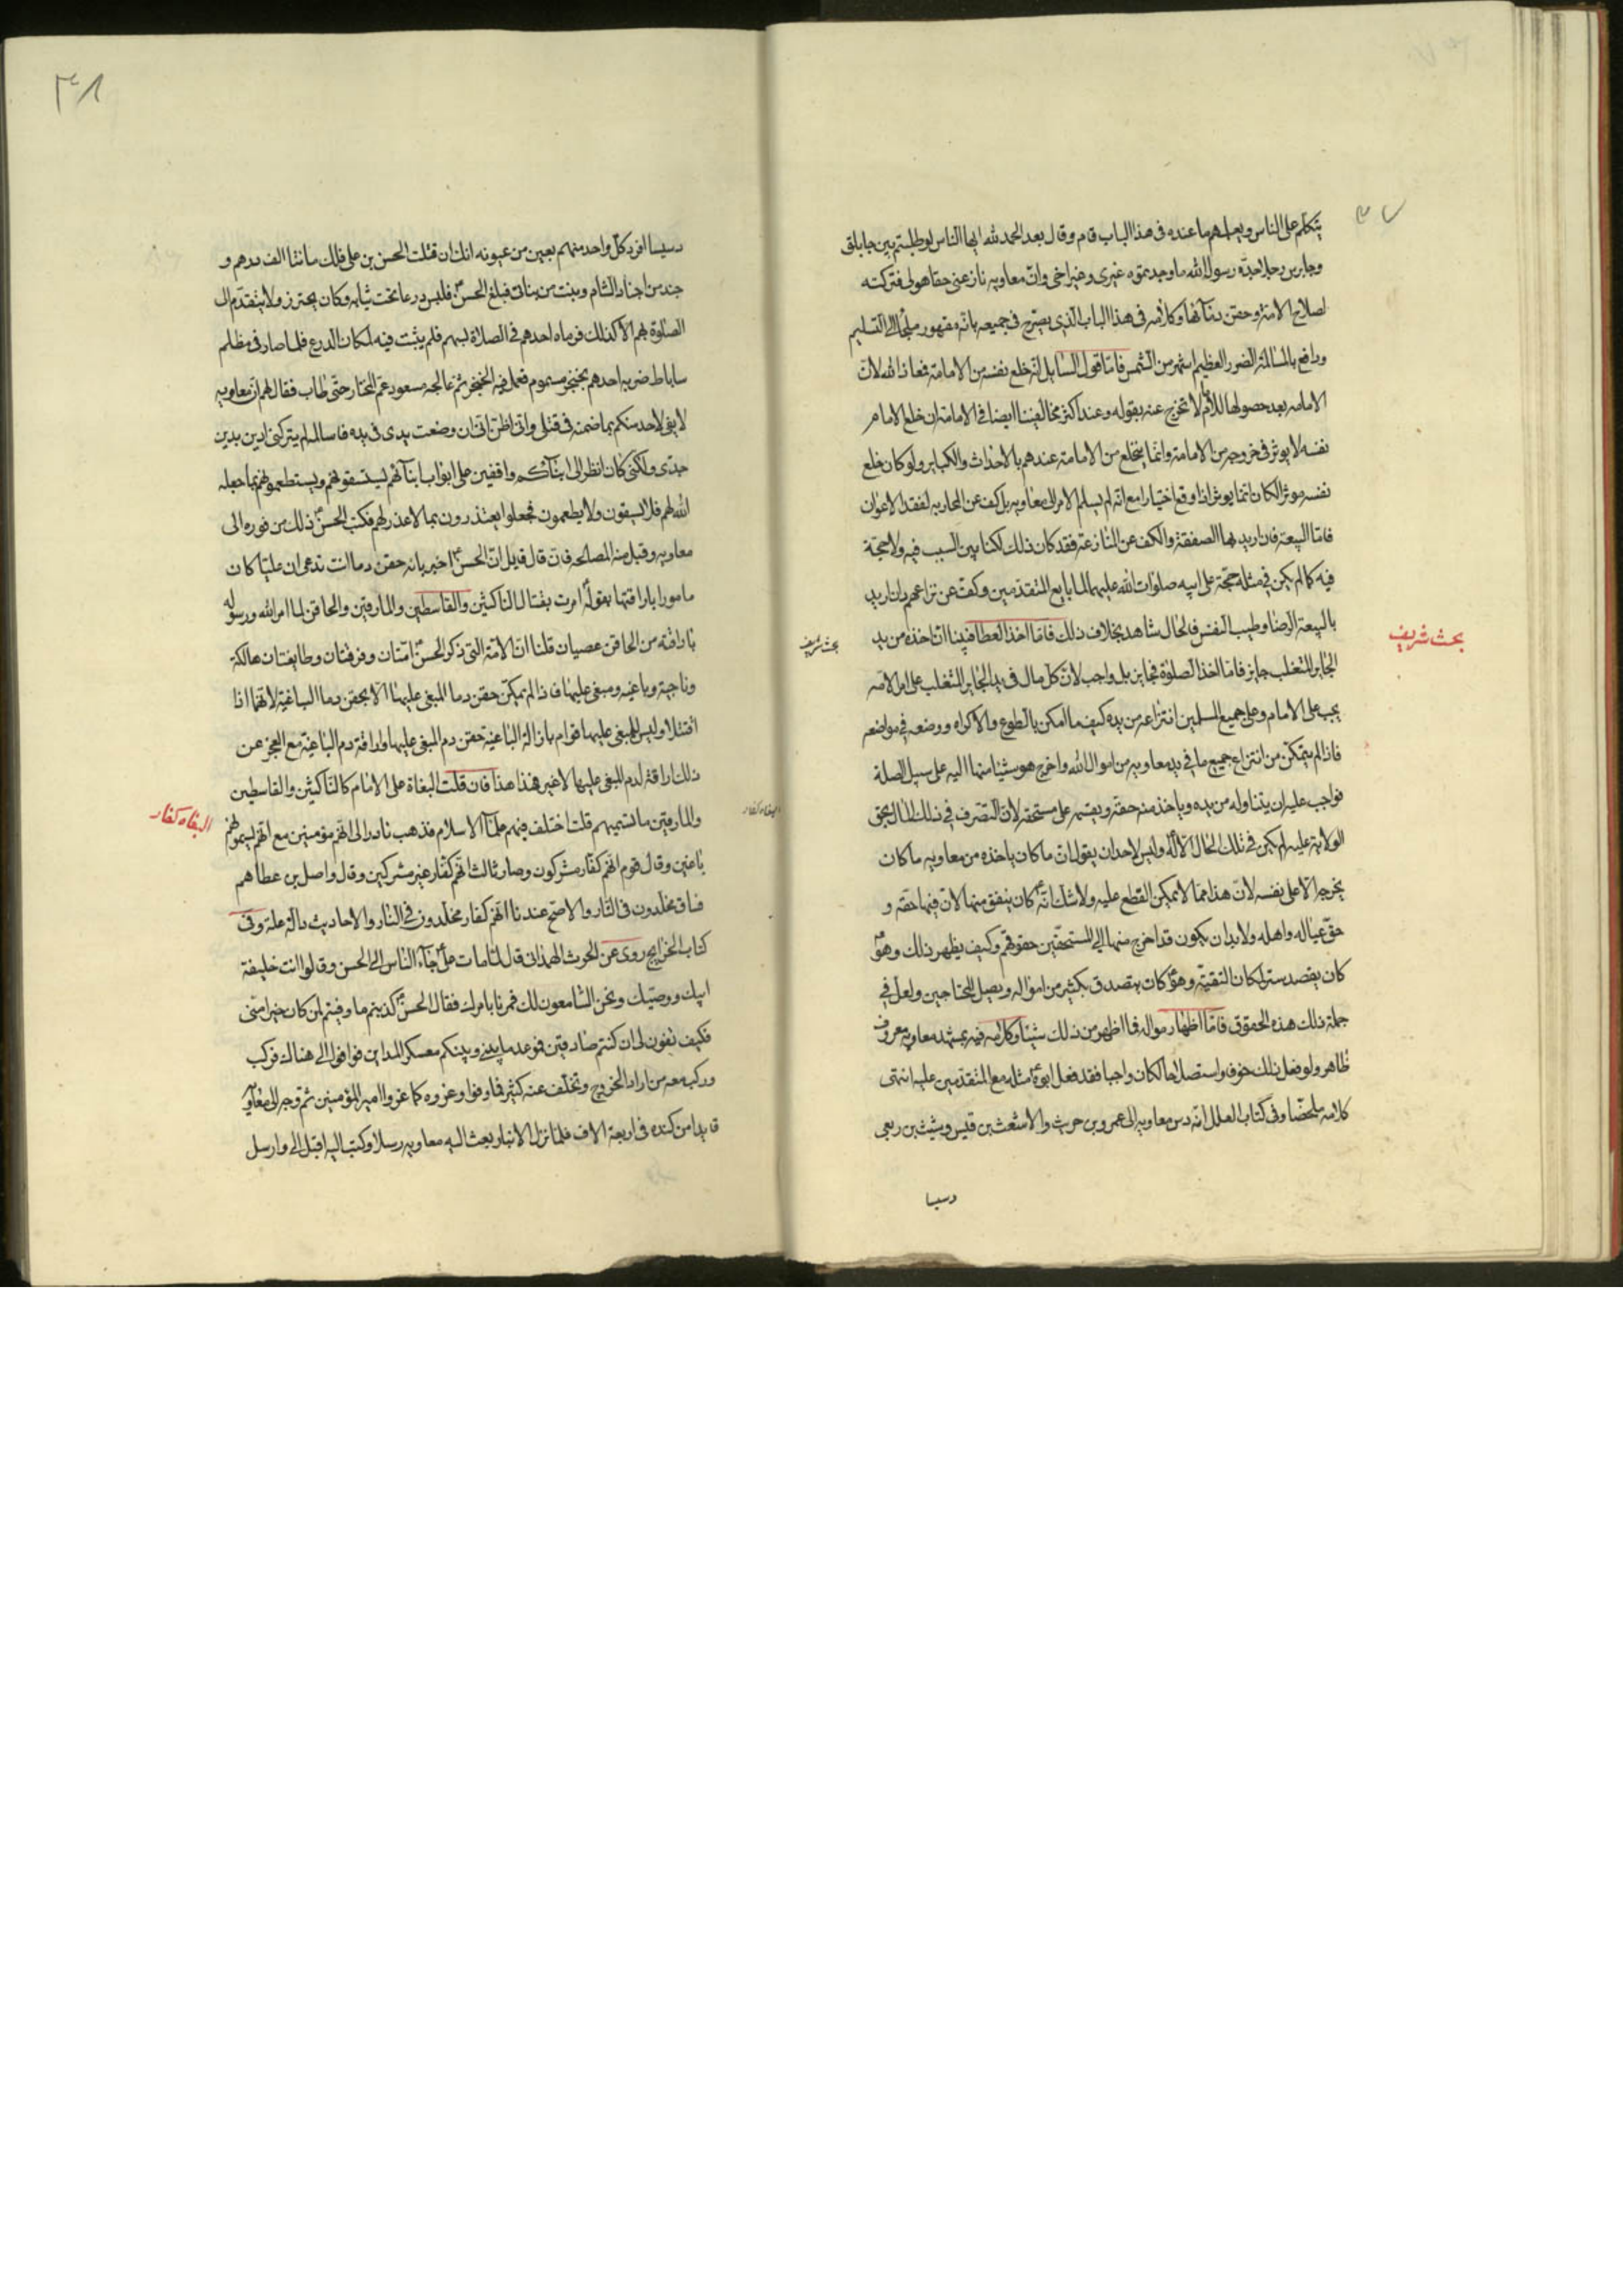 ٣٧
يتكلم على الناس ويعلمهم ما عنده فى هذا الباب قام وقال بعد الحمد لله ايها الناس لو طلبتم بين جابلق
وجابرس رجلا جده رسول الله ما وجدتموه غيرى وغير اخى وان معاويه نازعنى حقا هو لى فتركته
لصلاح الامة وحقن دمآئها وكلامه فى هذا الباب الذى يصرح فى جميعه بانه مقهور ملجأ الى التسليم
ودافع بالمسالمة الضرر العظيم اشهر من الشمس فامّا قول السايل انه خلع نفسه من الامامة فمعاذ الله لانّ
الامامه بعد حصولها للامام لا تخرج عنه بقوله وعند اكثر مخالفينا ايضا فى الامامة ان خلع الامام
نفسه لا يوثر فى خروجه من الامامة وانما ينخلع من الامامة عندهم بالاحداث والكباير ولو كان خلع
نفسه موثرا لكان انما يوثر اذا وقع اختيارا مع انه لم يسلم الامر الى معاويه بل كف عن المحاربه لفقد الاعوان
فامّا البيعة فان اريد بها الصفقة والكف عن المنازعة فقد كان ذلك لكنا بين السبب فيه ولا حجة
فيه كما لم يكن فى مثله حجة على ابيه صلوات الله عليهما لما بايع المتقدمين وكف عن نزاعهم وان اريد
بالبيعة الرضا وطيب النفس فالحال شاهد بخلاف ذلك فامّا اخذ العطا فبينا ان اخذه من يد
بحث شريف
بحث شريف
الجاير المتغلب جايز فامّا اخذ الصلوة فجايز بل واجب لانّ كل مال فى يد الجاير المتغلب على امر الامه
يجب على الامام وعلى جميع المسلمين انتزاعه من يده كيف ما امكن بالطوع والاكراه ووضعه فى مواضعه
فاذا لم يتمكن من انتزاع جميع ما فى يد معاويه من اموال الله واخرج هو شيئا منها اليه على سبيل الصلة
فواجب عليه ان يتناوله من يده وياخذ منه حقه ويقسمه على مستحقه لان التصرف فى ذلك المال بحق
الولاية عليه لم يكن فى تلك الحال الّا له وليس لاحد ان يقول ان ما كان ياخذه من معاويه ما كان
يخرجه الّا على نفسه لان هذا مما لا يمكن القطع عليه ولا شك انه كان ينفق منها لان فيها حقه و
حق عياله واهله ولا بد ان يكون قد اخرج منها الى المستحقين حقوقهم وكيف يظهر ذلك وهو
كان يقصد ستره لمكان التقية وهو كان يتصدق بكثير من امواله ويصل المحتاجين ولعل فى
جملة ذلك هذه الحقوق فامّا اظهار موالاته فما اظهر من ذلك شيئا وكلامه فيه بمشهد معاويه معروف
ظاهر ولو فعل ذلك خوفا واستصلاحا لكان واجبا فقد فعل ابوه مثله مع المتقدمين عليه انتهى
كلامه ملخصا وفى كتاب العلل انه دس معاويه الى عمرو بن حريث والاشعث بن قيس وشبث بن ربعى
دسيسا
٣٨
دسيسا افرد كل واحد منهم بعين من عيونه انك ان قتلت الحسن بن على فلك مائتا الف درهم و
جند من اجناد الشام وبنت من بناتى فبلغ الحسن فلبس درعا تحت ثيابه وكان يحترز ولا يتقدم الى
الصلوة بهم الّا كذلك فرماه احدهم فى الصلاة بسهم فلم يثبت فيه لمكان الدرع فلما صار فى مظلم
ساباط ضربه احدهم بخنجر مسموم فعمل فيه الخنجر ثم عالجه مسعود عم المختار حتى طاب فقال لهم ان معاويه
لا يفى لاحد منكم بما ضمنه فى قتلى وانى اظن انى ان وضعت يدى فى يده فاسالمه لم يتركنى ادين بدين
جدى ولكنى كان انظر الى ابنآئكم واقفين على ابواب ابنآئهم يستسقونهم ويستطعمونهم بما جعله
الله لهم فلا يسقون ولا يطعمون فجعلوا يعتذرون بما لا عذر لهم فكتب الحسن ذلك من فوره الى
معاويه وقبل منه المصالحه فان قال قايل ان الحسن اخبر بانه حقن دما انت تدعى ان عليا كان
مامورا باراقتها بقوله امرت بقتال الناكثين والقاسطين والمارقين والحاقن لما امر الله ورسوله
باراقته من الحاقن عصيان قلنا ان الامة التى ذكر الحسن امتان وفرقتان وطايفتان هالكة
وناجية وباغيه ومبغى عليها فاذا لم يمكن حقن دما المبغى عليها الّا بحقن دما الباغية لانهما اذا
اقتتلا وليس للمبغى عليها قوام بازالة الباغية حقن دم المبغى عليها واراقة دم الباغية مع العجز عن
ذلك اراقة لدم المبغى عليها لا غير هذا هذا فان قلت البغاة على الامام كالناكثين والقاسطين
والمارقين ما تسميهم قلت اختلف فيهم علمآ الاسلام فذهب نادرا الى انهم مؤمنين مع انهم يسمونهم
البغاه كفار
البغاه كفار
باغين وقال قوم انهم كفار مشركون وصار ثالث انهم كفار غير مشركين وقال واصل بن عطا هم
فساق مخلدون فى النار والاصح عندنا انهم كفار مخلدون فى النار والاحاديث دالة عليه وفى
كتاب الخرايج روى عن الحرث الهمدانى قال لما مات على جآء الناس الى الحسن وقالوا انت خليفة
ابيك ووصيك ونحن السامعون لك فمرنا بامرك فقال الحسن كذبتم ما وفيتم لمن كان خيرا منى
فكيف تفون لى ان كنتم صادقين فموعد ما بينى وبينكم معسكر المداين فوافوا الى هناك فركب
وركب معه من اراد الخروج وتخلف عنه كثير فما وفوا وغروه كما غروا امير المؤمنين ثم وجه الى معاويه
قايدا من كنده فى اربعة الاف فلما نزل الانبار بعث اليه معاويه رسلا وكتب اليه اقبل الى وارسل